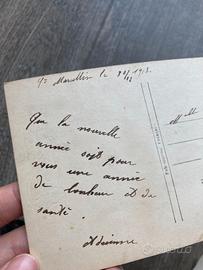 St Marcellin le 30/12 1913.
Que la nouvelle
année soit pour
vous une année
de bonheur et de
santé.
Adrienne
M M